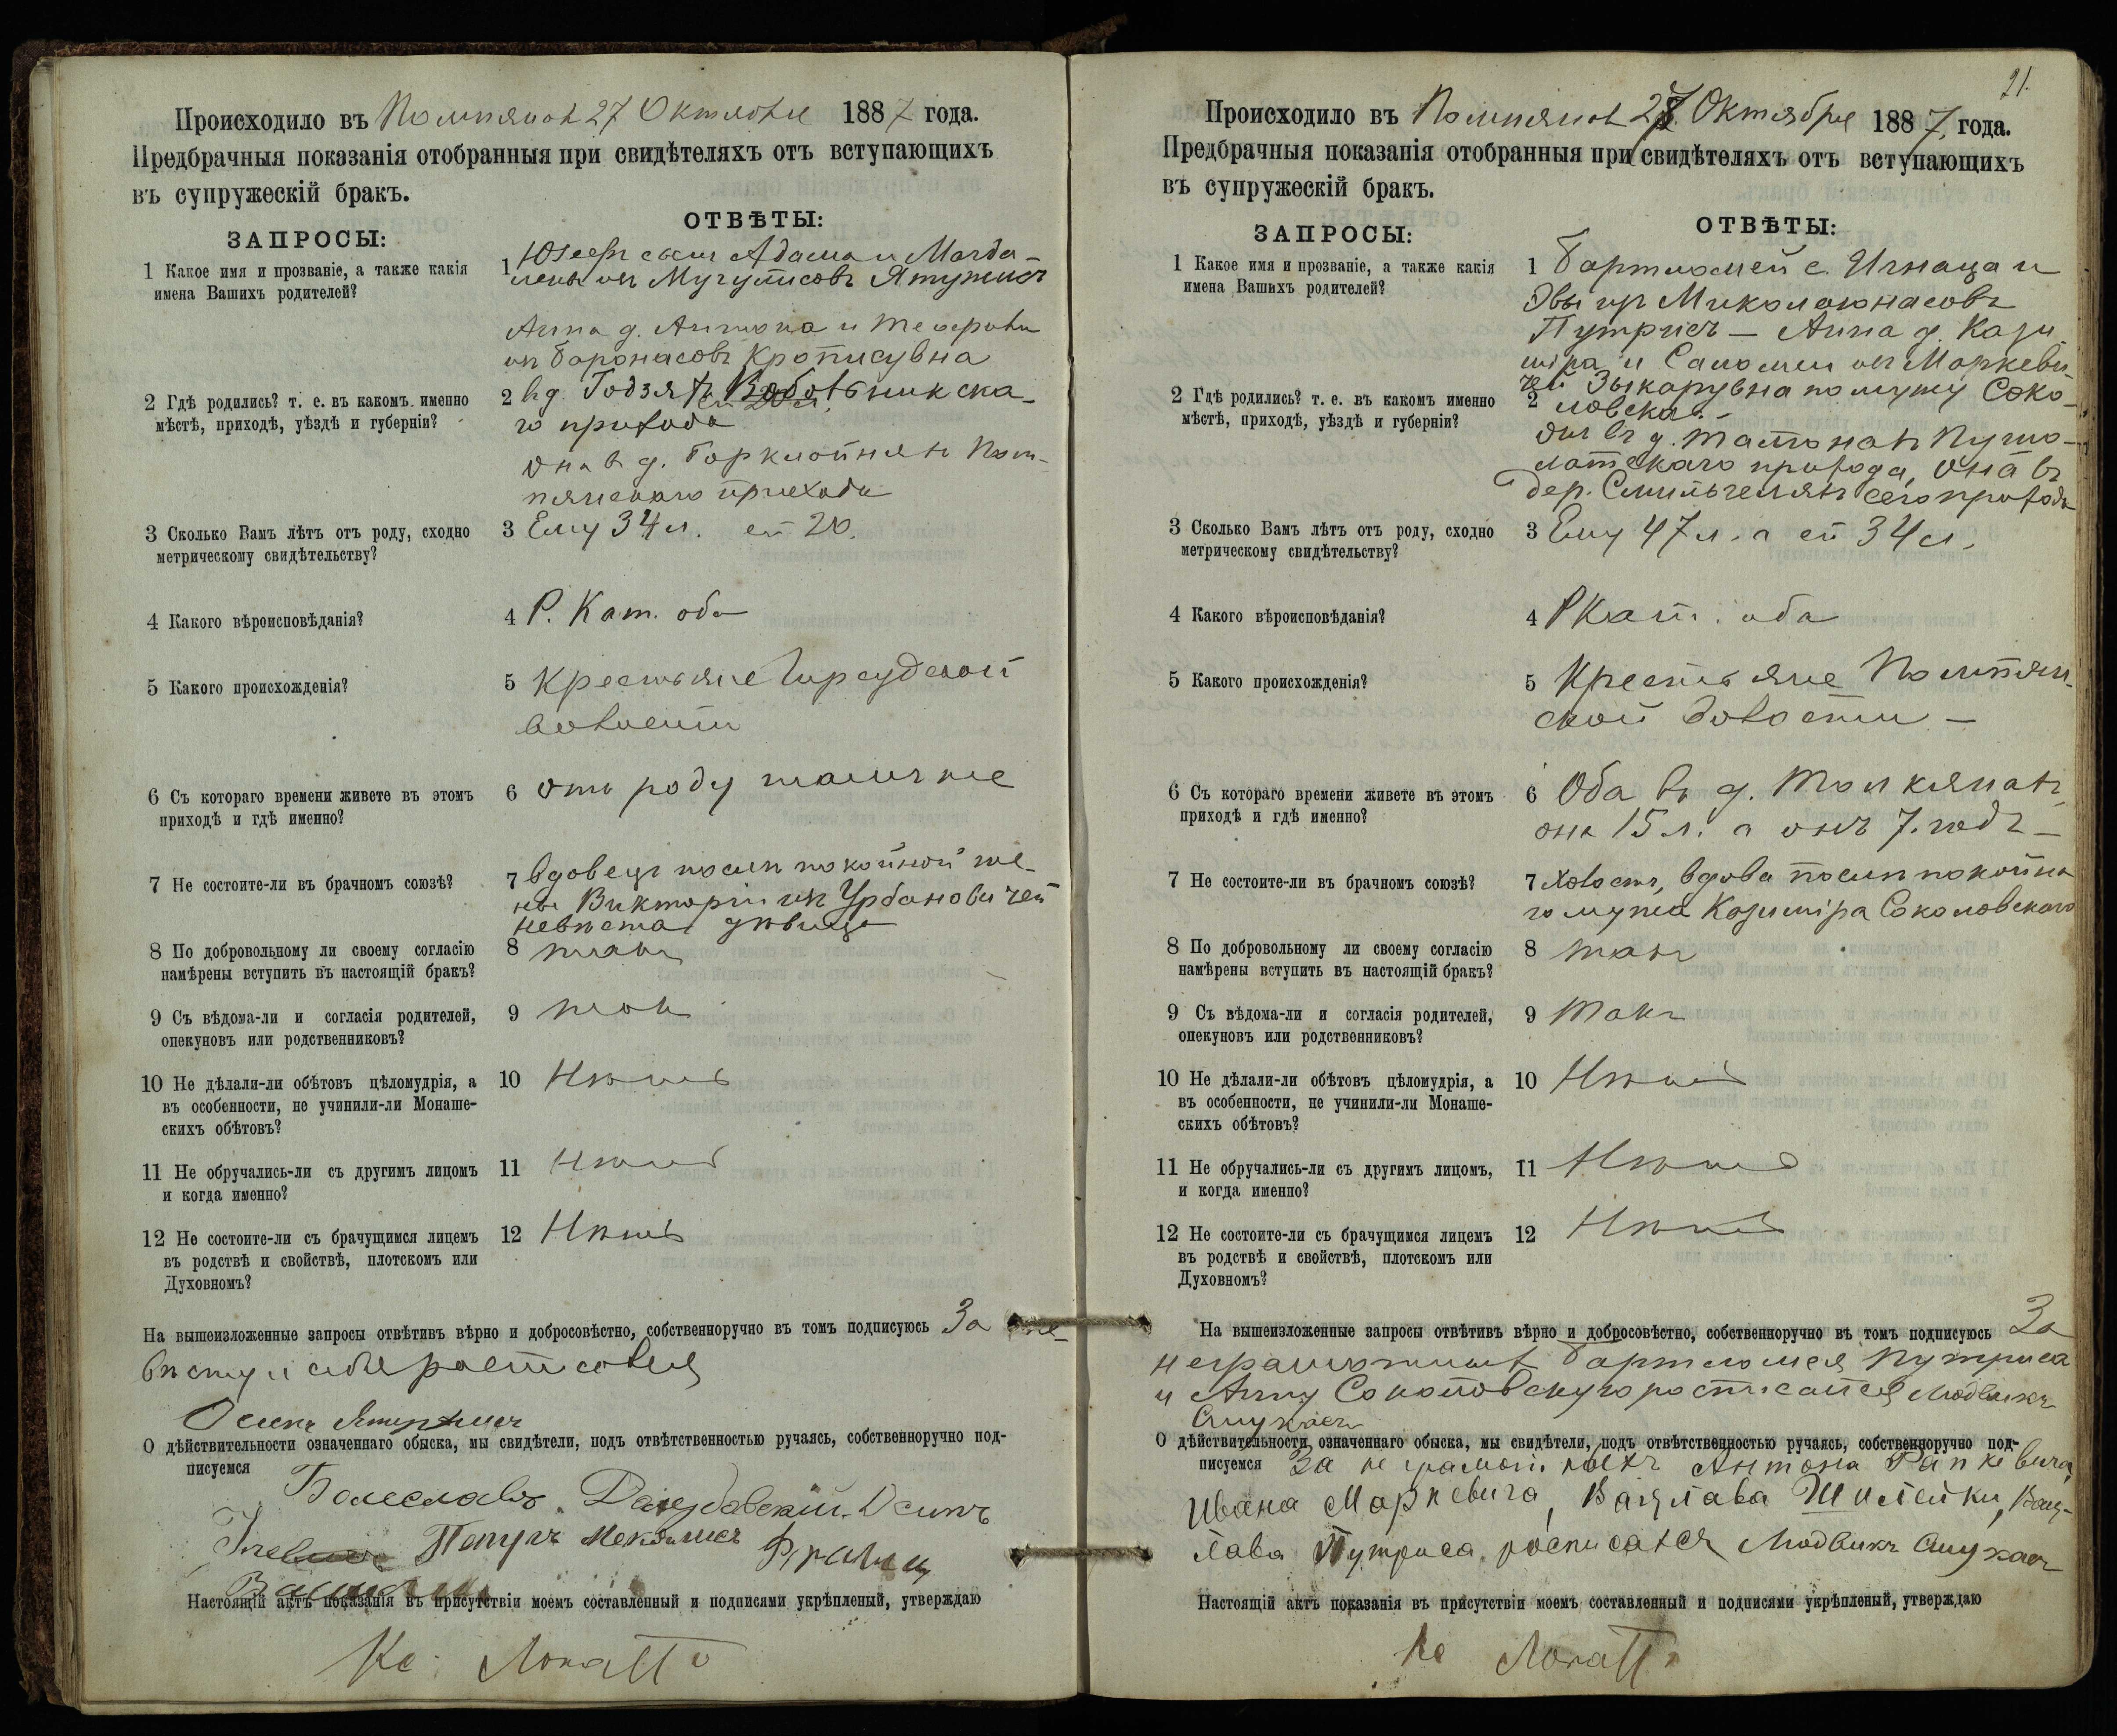 Происходило въ Помпянахъ 27 Октября 1887 года.
Предбрачныя показанія отобранныя при свидѣтеляхъ отъ вступающихъ
въ супружескій бракъ.
ЗАПРОСЫ:
ОТВѢТЫ:
1 Какое имя и прозваніе, а также какія
имена Вашихъ родителей?
1 Юзефъ сынъ Адама и Магда-
лены изъ
Анна д. Антона и
изъ Баронасовъ
2 Гдѣ родились? т. е. въ какомъ именно
мѣстѣ, приходѣ, уѣздѣ и губерніи?
2 въ д.
го прихода
Она въ д. Пом-
пянскаго прихода
3 Сколько Вамъ лѣтъ отъ роду, сходно
метрическому свидѣтельству?
3 Ему 34 л. ей 20.
4 Какого вѣроисповѣданія?
4 Р. Кат. оба
5 Какого происхожденія?
5 Крестьяне Гирсудской
волости
6 Съ котораго времени живете въ этомъ
приходѣ и гдѣ именно?
6 Отъ роду тамъ же
7 Не состоите-ли въ брачномъ союзѣ?
7 вдовецъ послѣ покойной же-
ны Викторіи изъ Урбановичей
невѣста дѣвица
8 По добровольному ли своему согласію
намѣрены вступить въ настоящій бракъ?
8 такъ
9 Съ вѣдома-ли и согласія родителей,
опекуновъ или родственниковъ?
9 такъ
10 Не дѣлали-ли обѣтовъ цѣломудрія, а
въ особенности, не учинили-ли Монаше-
скихъ обѣтовъ?
10 Нѣтъ
11 Не обручались-ли съ другимъ лицомъ
и когда именно?
11 Нѣтъ
12 Не состоите-ли съ брачущимся лицемъ
въ родствѣ и свойствѣ, плотскомъ или
Духовномъ?
12 Нѣтъ
На вышеизложенные запросы отвѣтивъ вѣрно и добросовѣстно, собственноручно въ томъ подписуюсь За не-
вѣсту и себя росписался
Осипъ
О дѣйствительности означеннаго обыска, мы свидѣтели, подъ отвѣтственностью ручаясь, собственноручно под-
писуемся
Болеславъ Осипъ
Петръ
Настоящій актъ показанія въ присутствіи моемъ составленный и подписями укрѣпленый, утверждаю
Кс.
21.
Происходило въ Помпянахъ 27 Октября 1887 года.
Предбрачныя показанія отобранныя при свидѣтеляхъ отъ вступающихъ
въ супружескій бракъ.
ЗАПРОСЫ:
ОТВѢТЫ:
1 Какое имя и прозваніе, а также какія
имена Вашихъ родителей?
1 Бартломей с. Игнаца и
Эвы изъ Миколаюнасовъ
Путрисъ — Анна д. Кази
міра и Саломеи изъ Маркеви-
чей по мужу Соко-
ловская. -
2 Гдѣ родились? т. е. въ какомъ именно
мѣстѣ, приходѣ, уѣздѣ и губерніи?
2
Онъ въ д.
прихода, Она въ
дер. Смильгелянъ сего прихода
3 Сколько Вамъ лѣтъ отъ роду, сходно
метрическому свидѣтельству?
3 Ему 47 л. а ей 34 л.
4 Какого вѣроисповѣданія?
4 Р Кат. оба
5 Какого происхожденія?
5 Крестьяне Помпян-
ской волости —
6 Съ котораго времени живете въ этомъ
приходѣ и гдѣ именно?
6 Оба въ д.
она 15 л. а онъ 7. годъ —
7 Не состоите-ли въ брачномъ союзѣ?
7 Холостъ, вдова послѣ покойна
го мужа Казиміра Соколовскаго
8 По добровольному ли своему согласію
намѣрены вступить въ настоящій бракъ?
8 такъ
9 Съ вѣдома-ли и согласія родителей,
опекуновъ или родственниковъ?
9 Такъ
10 Не дѣлали-ли обѣтовъ цѣломудрія, а
въ особенности, не учинили-ли Монаше-
скихъ обѣтовъ?
10 Нѣтъ
11 Не обручались-ли съ другимъ лицомъ,
и когда именно?
11 Нѣтъ
12 Не состоите-ли съ брачущимся лицемъ
въ родствѣ и свойствѣ, плотскомъ или
Духовномъ?
12 Нѣтъ
На вышеизложенные запросы отвѣтивъ вѣрно и добросовѣстно, собственноручно въ томъ подписуюсь За
неграмотныхъ Бартломея Путриса
и Анну Соколовскую росписался Людвикъ
О дѣйствительности означеннаго обыска, мы свидѣтели, подъ отвѣтственностью ручаясь, собственноручно под-
писуемся За неграмотныхъ Антона Рапкевича,
Ивана Маркевича, Вацлава Шилейки, Вац-
лава Путриса росписался Людвикъ
Настоящій актъ показанія въ присутствіи моемъ составленный и подписями укрѣпленый, утверждаю
Кс